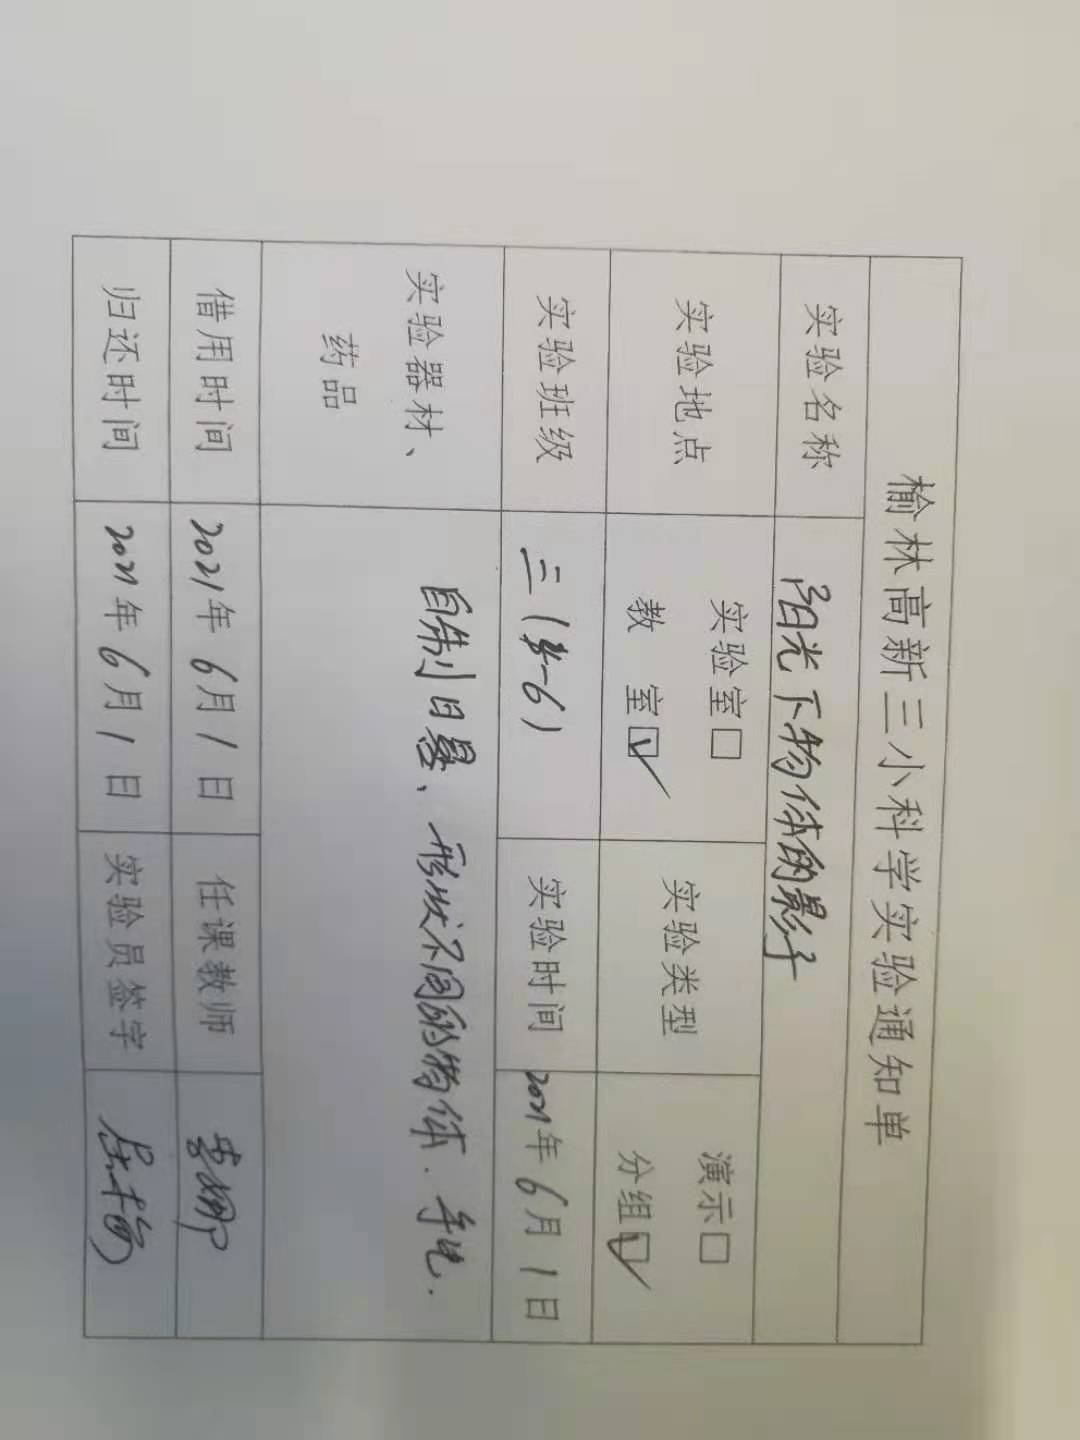 榆林高新三小科学实验通知单
实验名称 阳光下物体的影子
实验地点 实验室□ 教 室☑ 实验类型 演示□ 分组☑
实验班级 三(4-6) 实验时间 2021年6月1日
实验器材、药品 自制日晷、形状不同的物体.手电.
借用时间 2021年6月1日 任课教师
归还时间 2021年6月1日 实验员签字